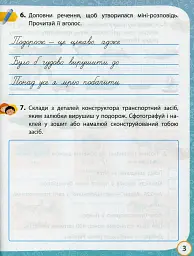 6. Доповни речення, щоб утворилася міні-розповідь.
Прочитай її вголос.
Подорож – це цікаво, адже
Було б чудово вирушити до
Понад усе я мрію побачити
7. Склади з деталей конструктора транспортний засіб,
яким залюбки вирушиш у подорож. Сфотографуй і на-
клей у зошит або намалюй сконструйований тобою
засіб.
3